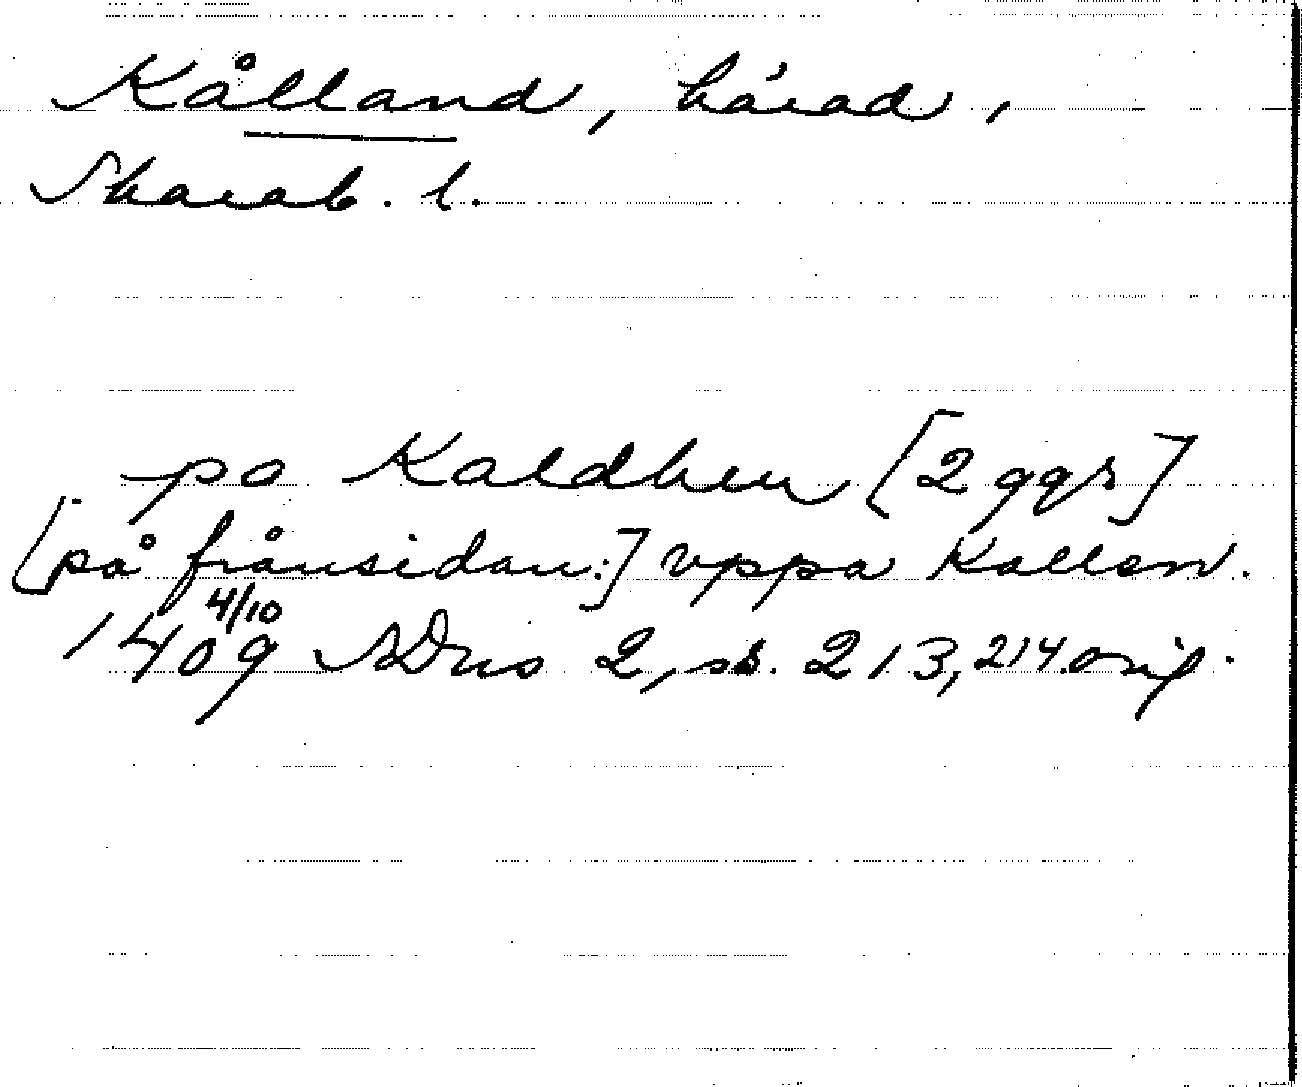 Kålland, härad,
Skarab. l.
po Kaldhen [2 ggr]
[på frånsidan:] vppa Kallen.
1409 4/10 SDns 2, ss. 213, 214. orig.